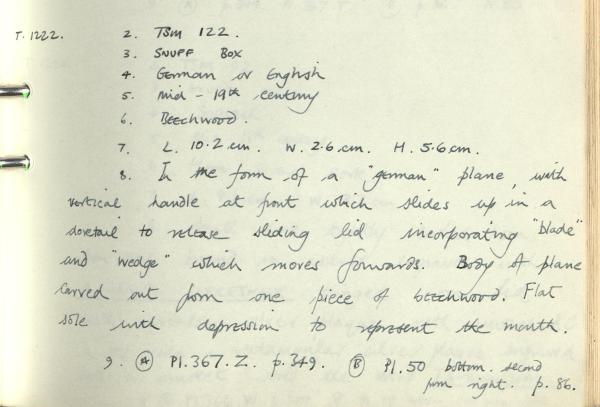 T.1222. 2. TSM 122.
3. SNUFF BOX
4. German or English
5. Mid-19th century
6. Beechwood.
7 L. 10.2 cm. W. 2.6 cm. H. 5.6 cm.
8. In the form of a "german" plane, with
vertical handle at front which slides up in a
dovetail to release sliding lid incorporating "blade"
and "wedge" which moves forwards. Body of plane
carved out from one piece of beechwood. Flat
sole with depression to represent the mouth.
9. (A) Pl.367.Z. p.349. (B) Pl.50 bottom. second
from right. p.86.